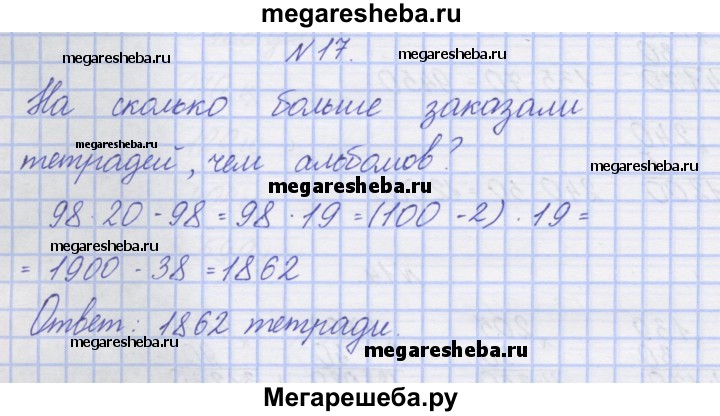 megaresheba.ru
№17.
megaresheba.ru
megaresheba.ru
На сколько больше заказали
megaresheba.ru
тетрадей, чем альбомов?
megaresheba.ru
megaresheba.ru
98 · 20 - 98 = 98 · 19 = (100 - 2) · 19 =
megaresheba.ru
= 1900 - 38 = 1862
Ответ: 1862 тетради.
megaresheba.ru
megaresheba.ru
Мегарешеба.ру